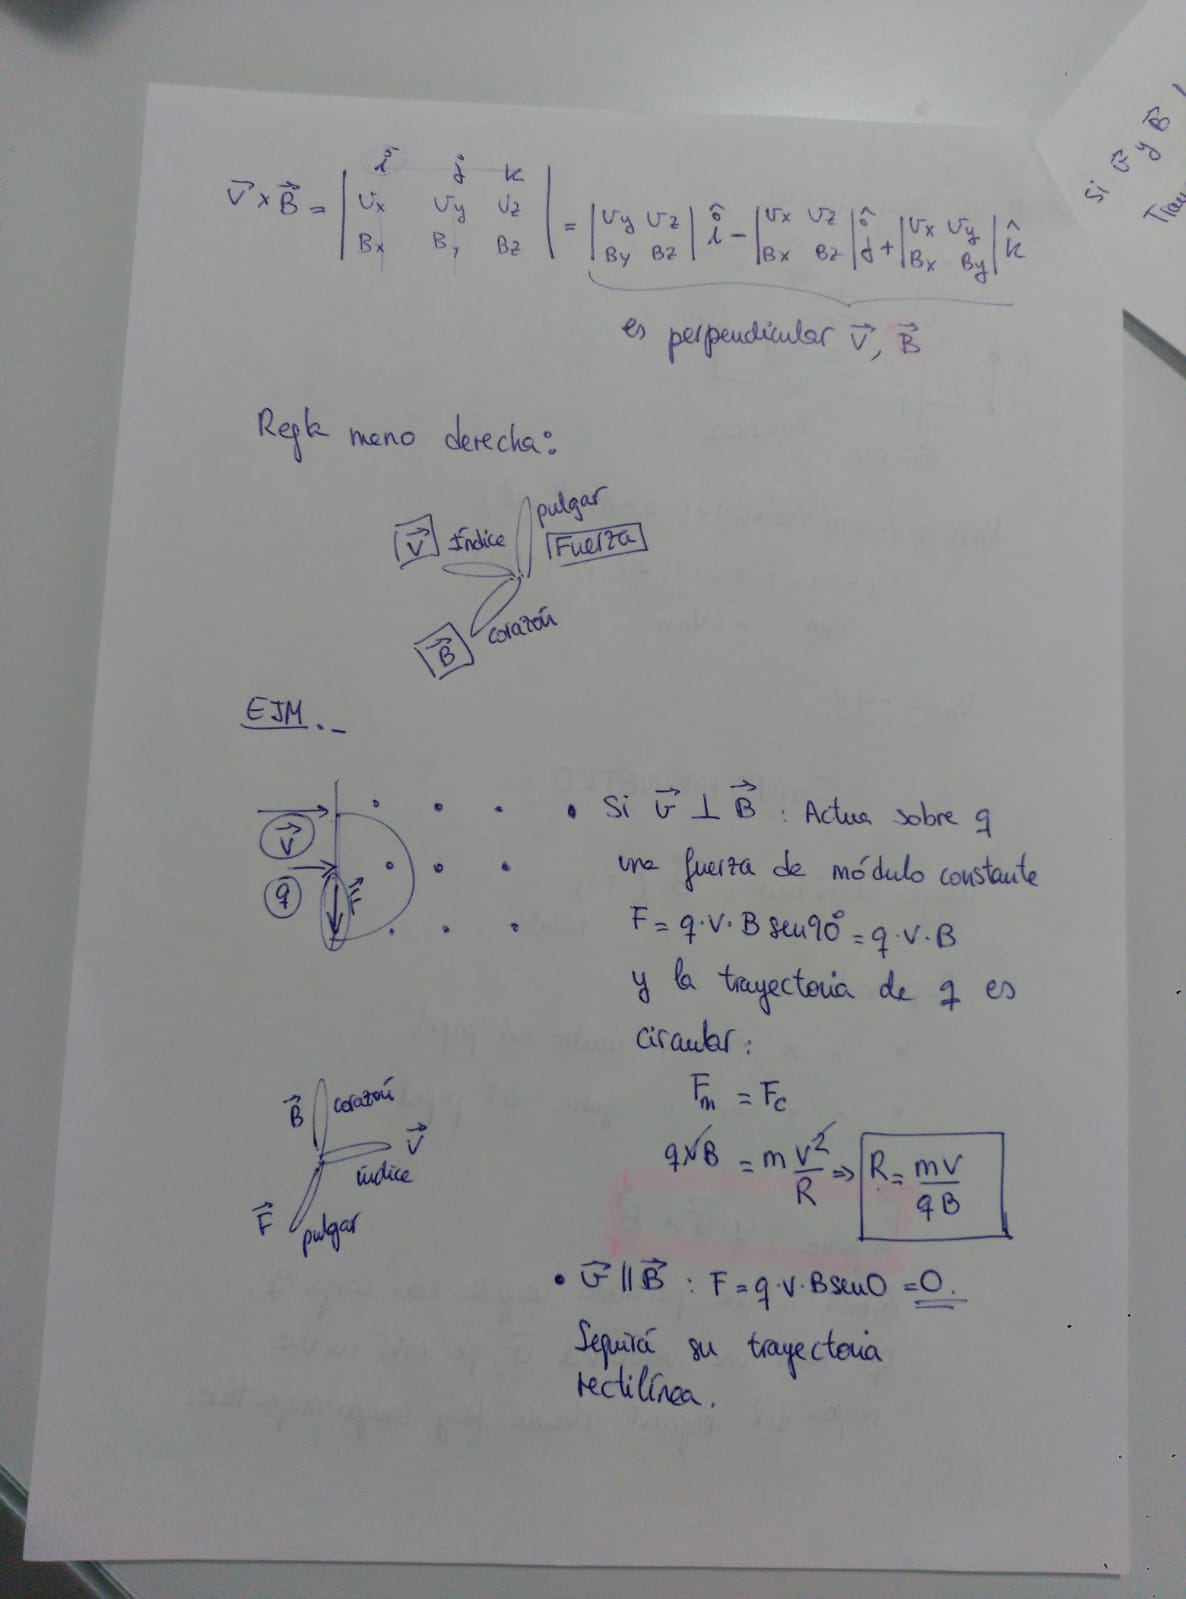 V⃗ × B⃗ = | i⃗ j⃗ k ; Vx Vy Vz ; Bx By Bz | = | Vy Vz ; By Bz | î − | Vx Vz ; Bx Bz | ĵ + | Vx Vy ; Bx By | k̂
es perpendicular V⃗, B⃗
Regla mano derecha:
pulgar
V⃗ índice Fuerza
corazón
B⃗
EJM.-
V⃗
q F⃗
• Si v⃗ ⊥ B⃗ : Actua sobre q
una fuerza de módulo constante
F = q·v·B sen90° = q·v·B
y la trayectoria de q es
circular:
Fm = Fc
qvB = m v²/R ⇒ R = mv/qB
B⃗ corazón
V⃗
índice
F⃗ pulgar
• v⃗ ∥ B⃗ : F = q·v·B sen0 = 0.
Seguirá su trayectoria
rectilínea.
Si v⃗ y B⃗